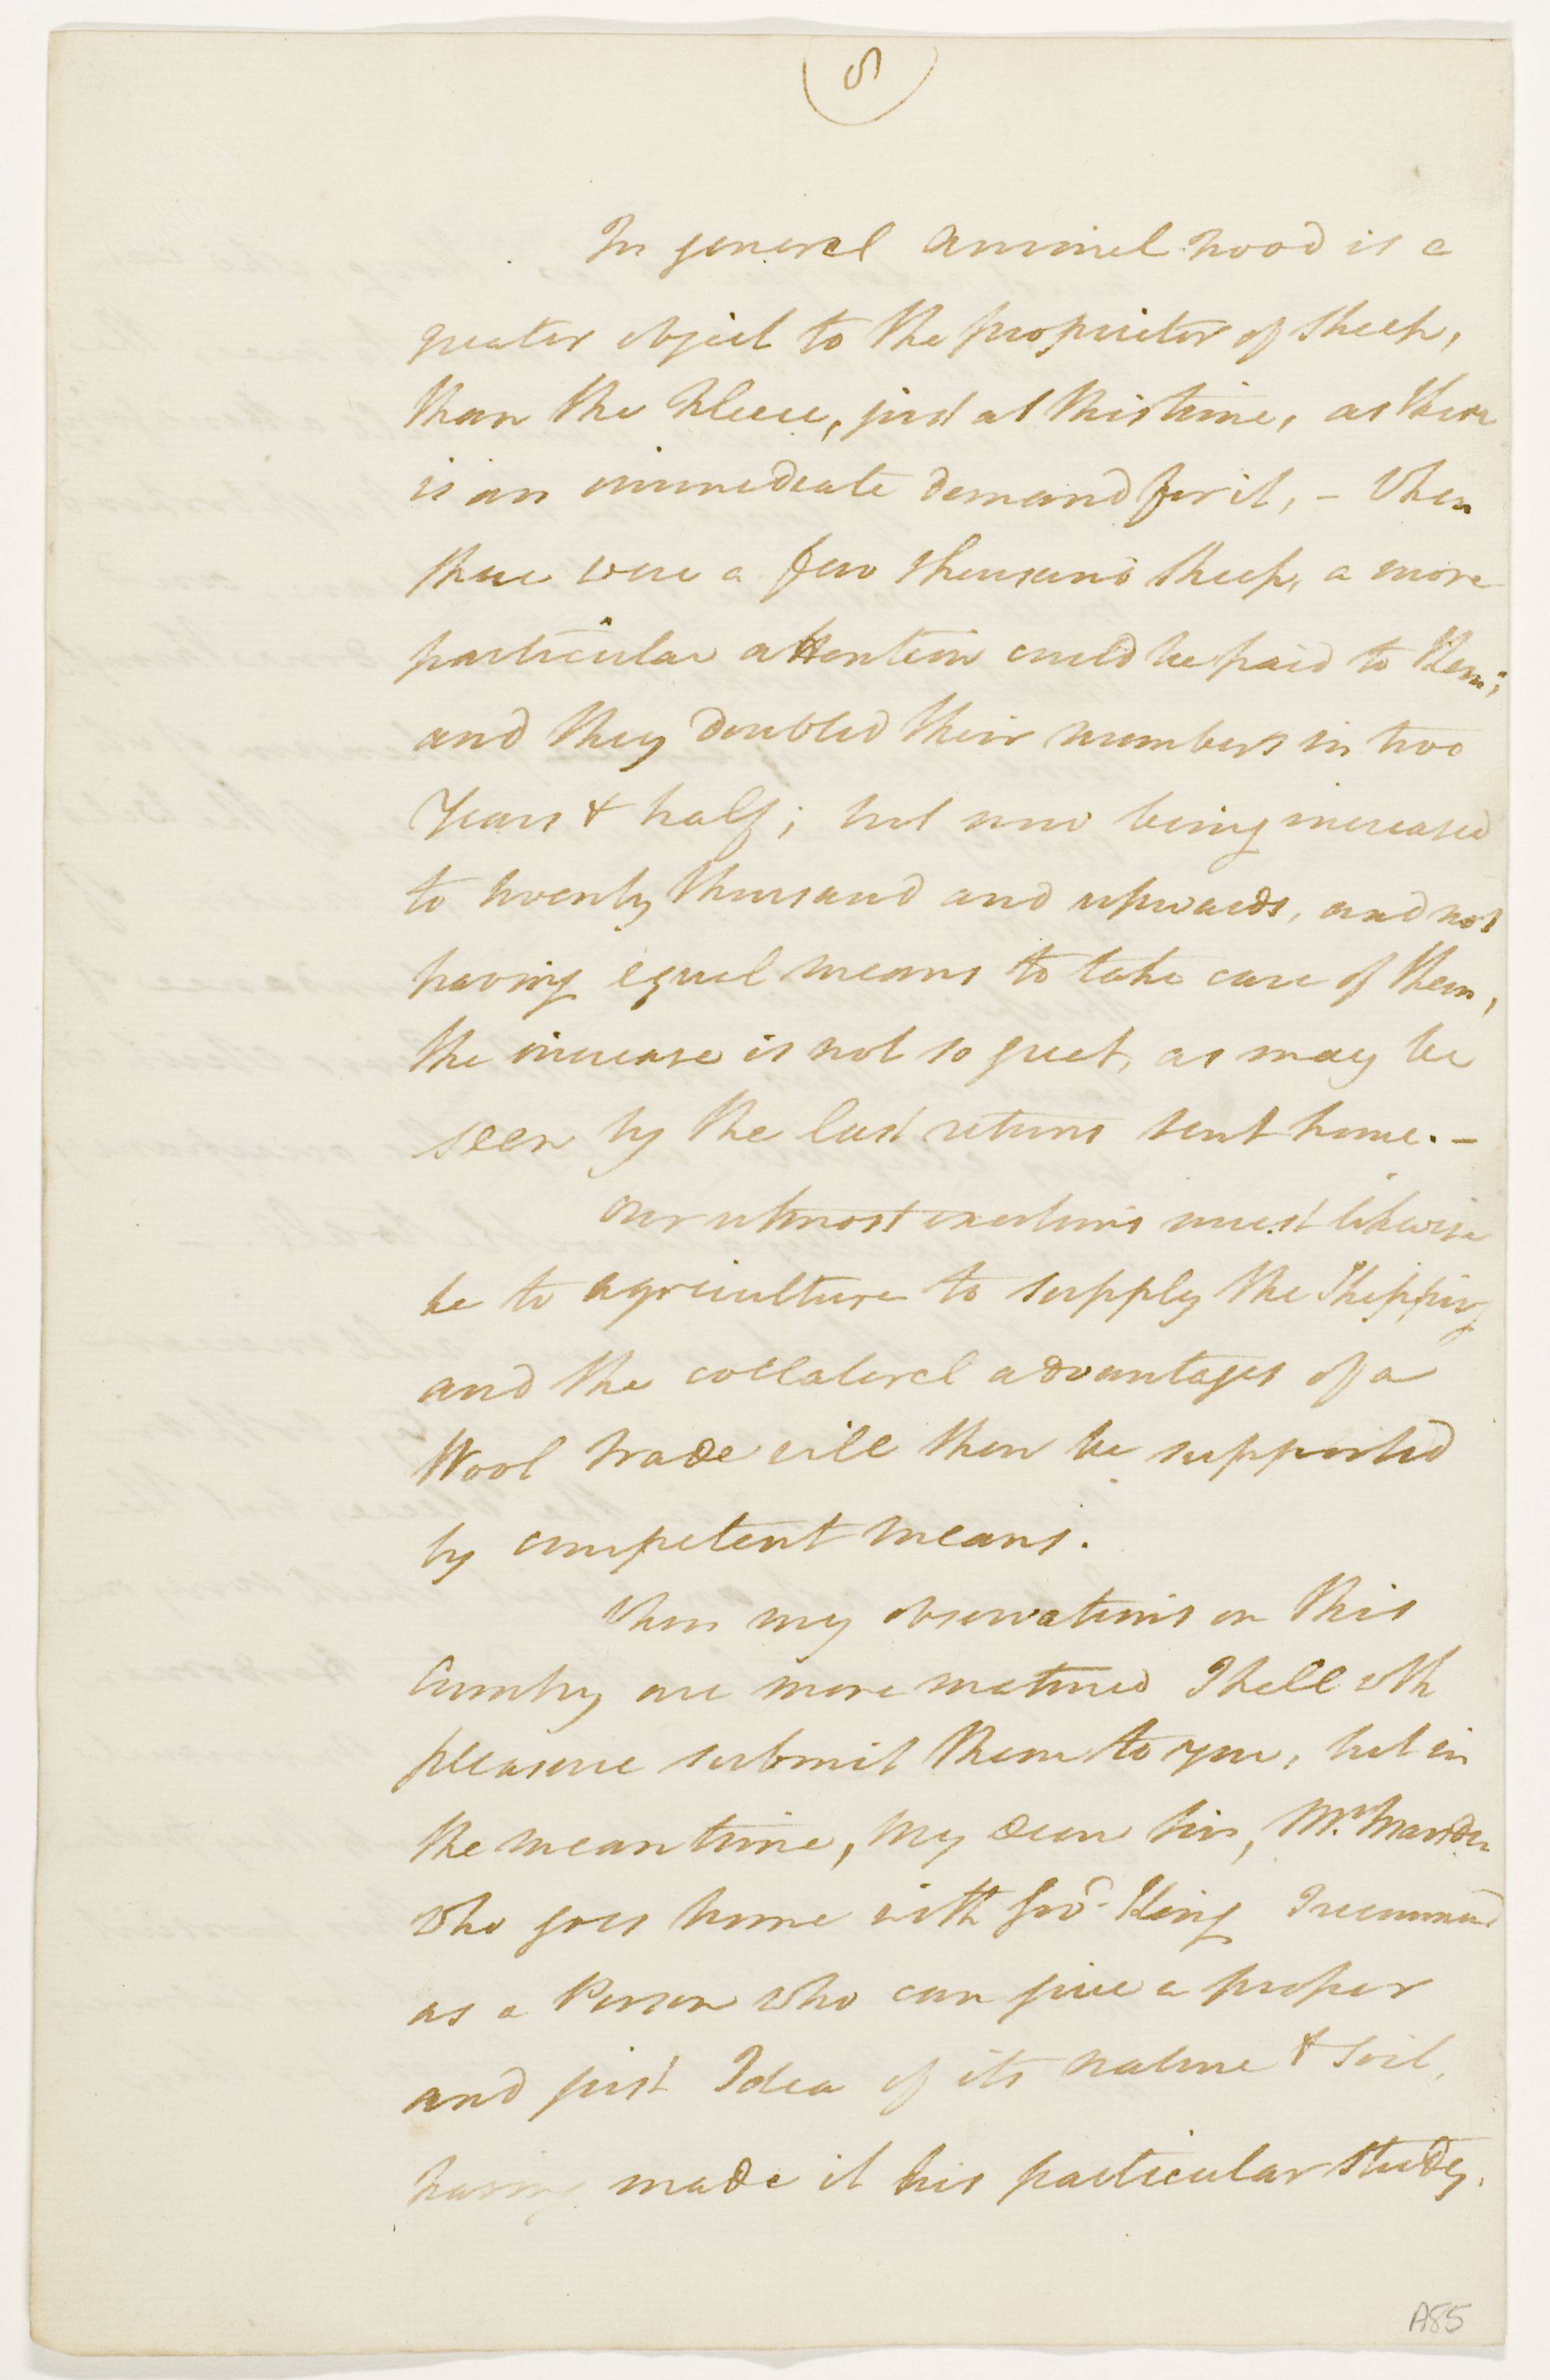 5
In general animal food is a
greater object to the proprietor of Sheep,
than the fleece, just at this time, as there
is an immediate demand for it, - When
there were a few thousand Sheep, a more
particular attention could be paid to them;
and they doubled their numbers in two
Years & half; but now being increased
to twenty thousand and upwards, and not
having equal means to take care of them,
the increase is not so great, as may be
seen by the last returns sent home. -
Our utmost exertions must likewise
be to agriculture to supply the Shipping
and the collateral advantages of a
Wool trade will then be supported
by competent means.
When my observations on this
Country are more matured I shall with
pleasure submit them to you, but in
the mean time, My dear Sir, Mr. Marsden
who goes home with Govr. King I recommend
as a Person who can give a proper
and just Idea of its nature & soil,
having made it his particular Study.
A85